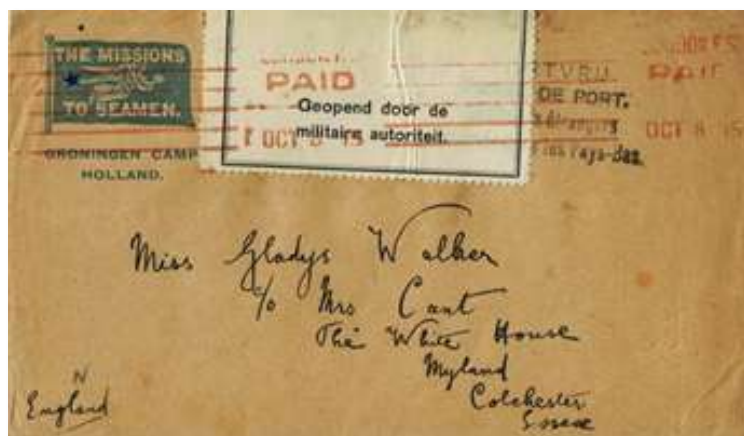 THE MISSIONS
TO SEAMEN.
GRONINGEN CAMP
HOLLAND.
PAID
Geopend door de
militaire autoriteit.
OCT 8 15
DE PORT.
PAID
OCT 8 15
Miss Gladys Walker
c/o Mrs Cant
The White House
Myland
Colchester
Essex
England